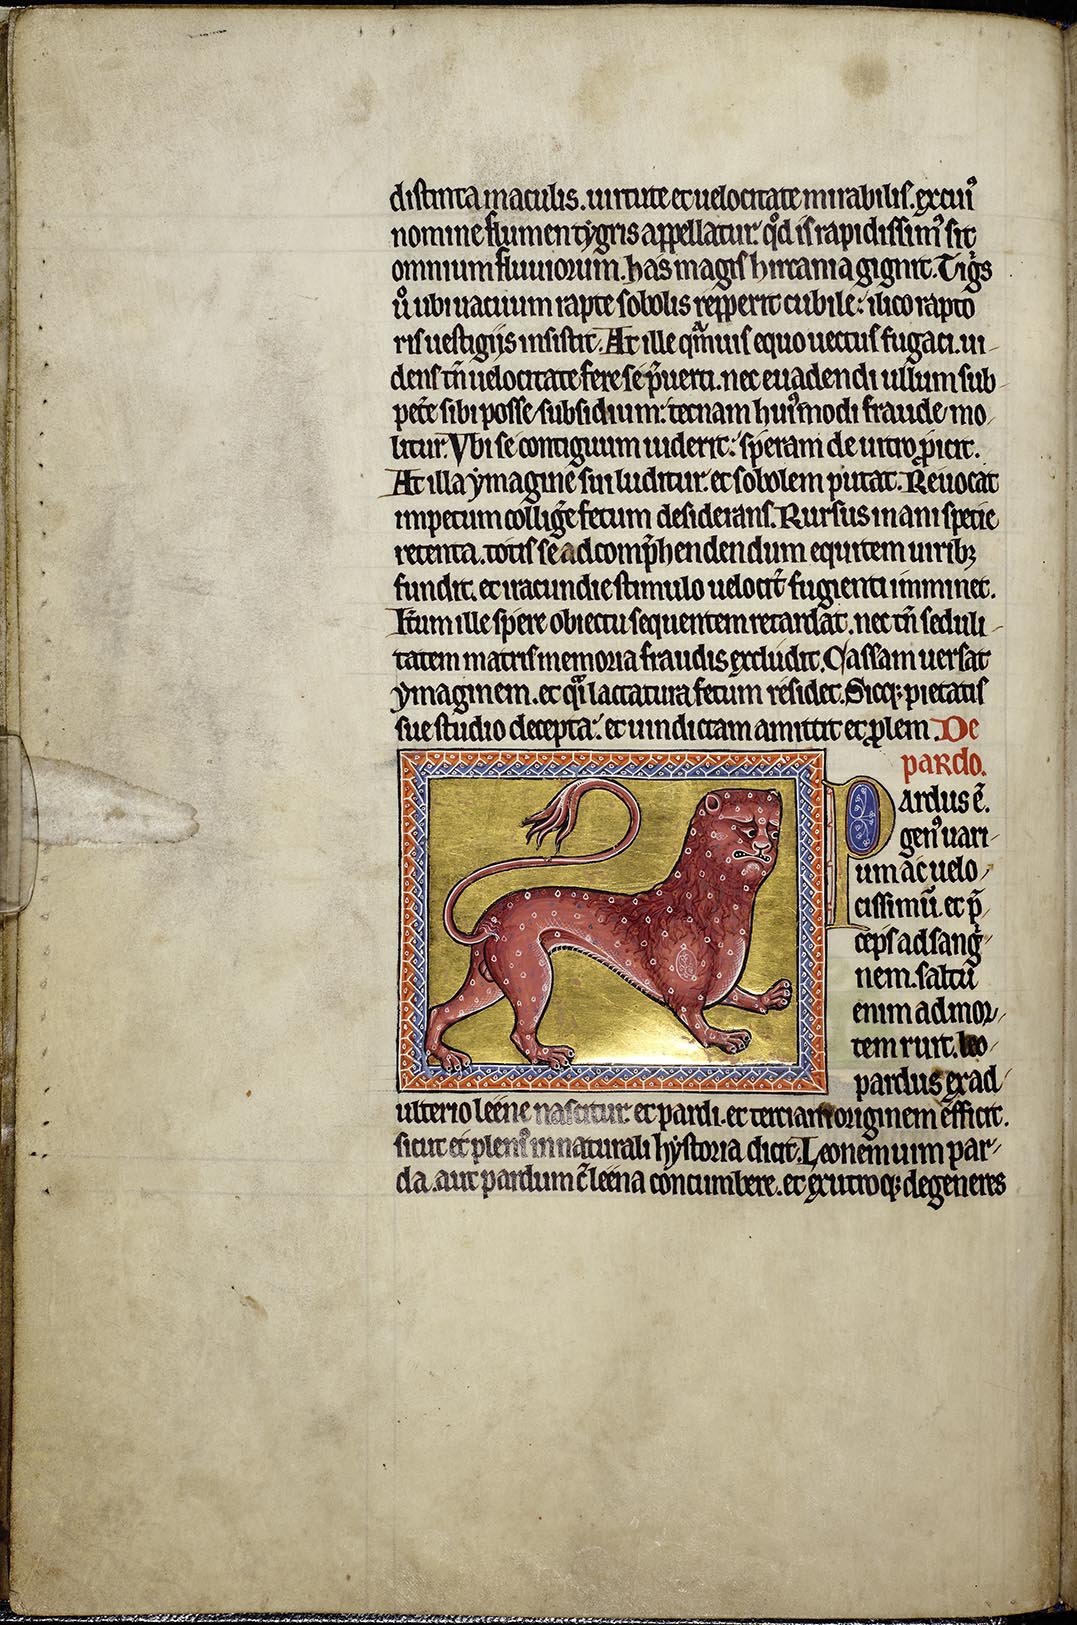 distincta maculis. uirtute et uelocitate mirabilis. ex cuiꝰ
nomine flumen tygris appellatur. qͦd is rapidissimꝰ sit
omnium fluuiorum. has magis hircania gignit. Tigͥs
uͦ ubi uacuum rapte sobolis repperit cubile: ilico rapto
ris uestigiis insistit. At ille qͣmuis equo uectus fugaci. ui-
dens tn̄ uelocitate fere se p̄uerti. nec euadendi ullum sub
pet̄e sibi posse subsidium: tecnam huiꝰmodi fraude mo-
litur. Vbi se contiguum uiderit: speram de uitro ꝓicit.
At illa ymagine sui luditur. et sobolem putat. Reuocat
impetum colliḡe fetum desiderans. Rursus inani specie
retenta. totis se ad comp̄hendendum equitem uiribꝫ
fundit. et iracundie stimulo uelocit̄ fugienti imminet.
It̄um ille spere obiectu sequentem retardat. nec tn̄ seduli-
tatem matris memoria fraudis excludit. Cassam uersat
ymaginem. et qͣi lactatura fetum residet. Sicqꝫ pietatis
sue studio decepta: et uindictam amittit et ꝓlem. De
pardo.
Pardus ē.
genꝰ uari-
um ac uelo-
cissimū. et p̄
ceps ad sangͥ-
nem. saltu
enim ad mor-
tem ruit. leo-
pardus ex ad
ulterio leene nascitur. et pardi. et terciam originem efficit.
sicut et pleniꝰ in naturali hystoria dicit. Leonem uim par-
da. aut pardum c̄ leena concumbere. et ex utroqꝫ degeneres